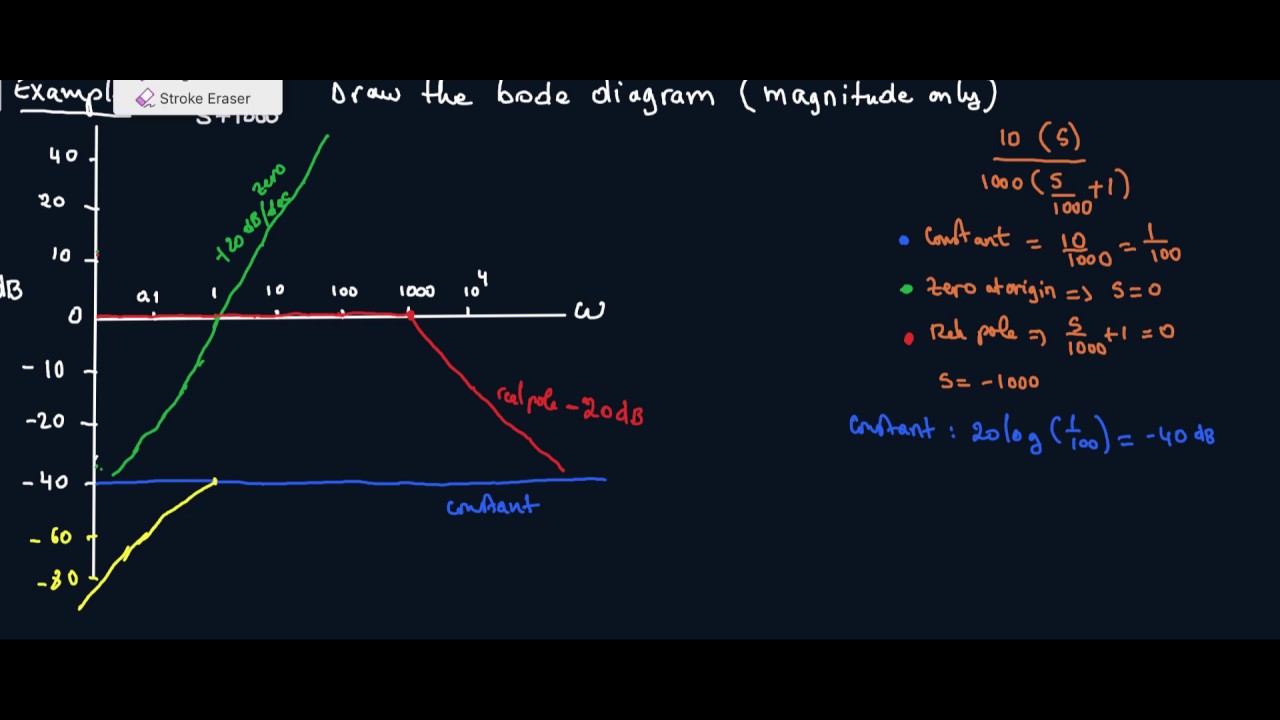 Exampl
Stroke Eraser
Draw the bode diagram (magnitude only)
S+1000
10 (S)
1000 (S/1000 +1)
• Constant = 10/1000 = 1/100
• Zero at origin => S=0
• Real pole => S/1000 +1 = 0
S= -1000
Constant : 20log (1/100) = -40 dB
40
20
10
dB
0
-10
-20
-40
-60
-80
0.1 1 10 100 1000 10^4
ω
zero
+20 dB/dec
real pole -20dB
constant